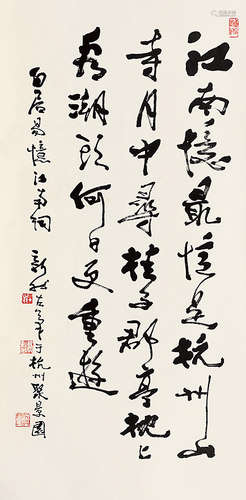 江南憶最憶是杭州山
寺月中尋桂子郡亭枕上
看潮頭何日更重遊
白居易憶江南詞
新秋左手于杭州聚景園